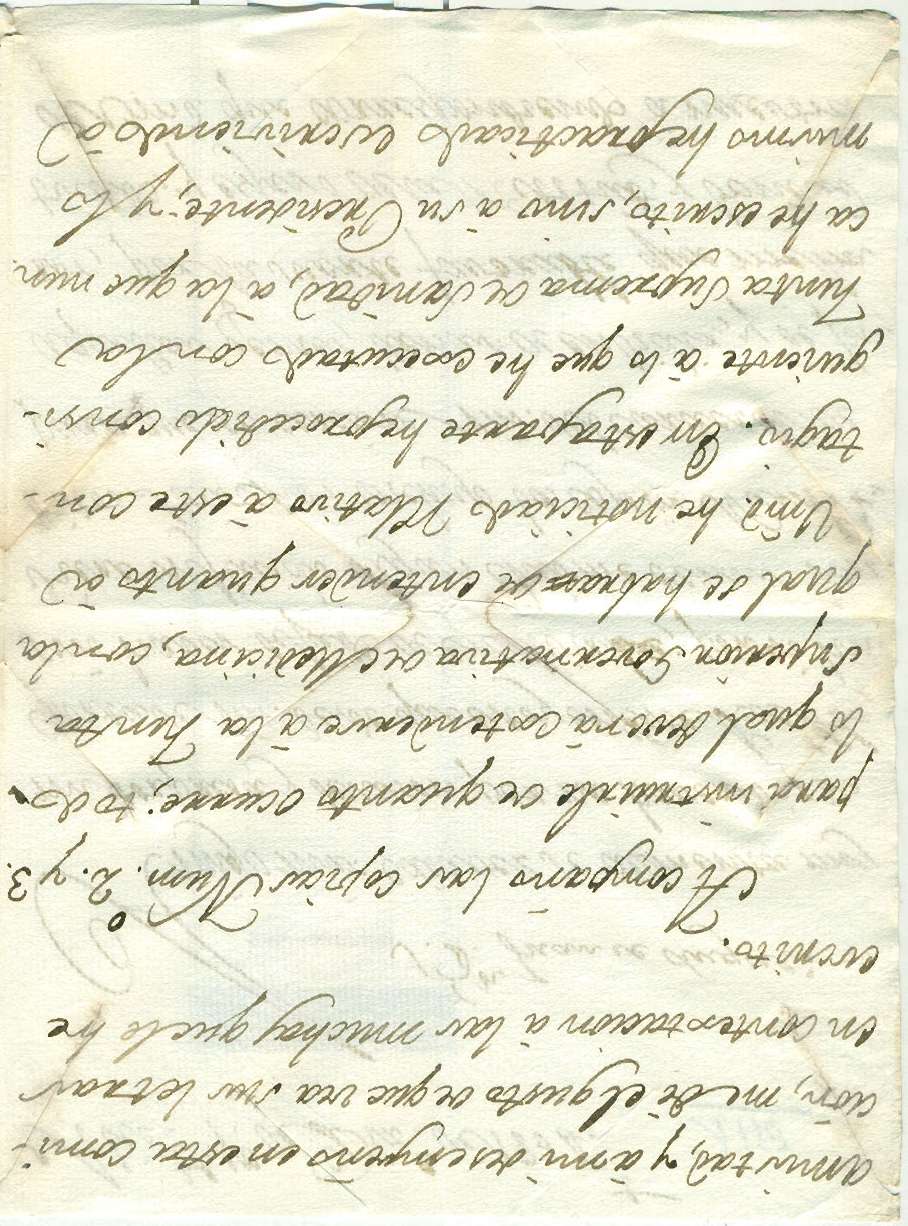 amistad, y à mi desempeño en esta comi-
sion, me dè el gusto de que vea sus letras
en contextacion à las muchas que le he
escrito.
Acompaño las copias Num.º 2. y 3.
para instruirle de quanto ocurre; todo
lo qual deverà extenderse à la Junta
Superior Governativa de Medicina, con la
qual se habrà de entender quanto à
Vmd. he noticiado relativo à este con-
tagio. En esta parte he procedido consi-
guiente à lo que he executado con la
Junta Suprema de Sanidad, à la que nun-
ca he escrito, sino à su Presidente; y lo
mismo he practicado escriviendo à